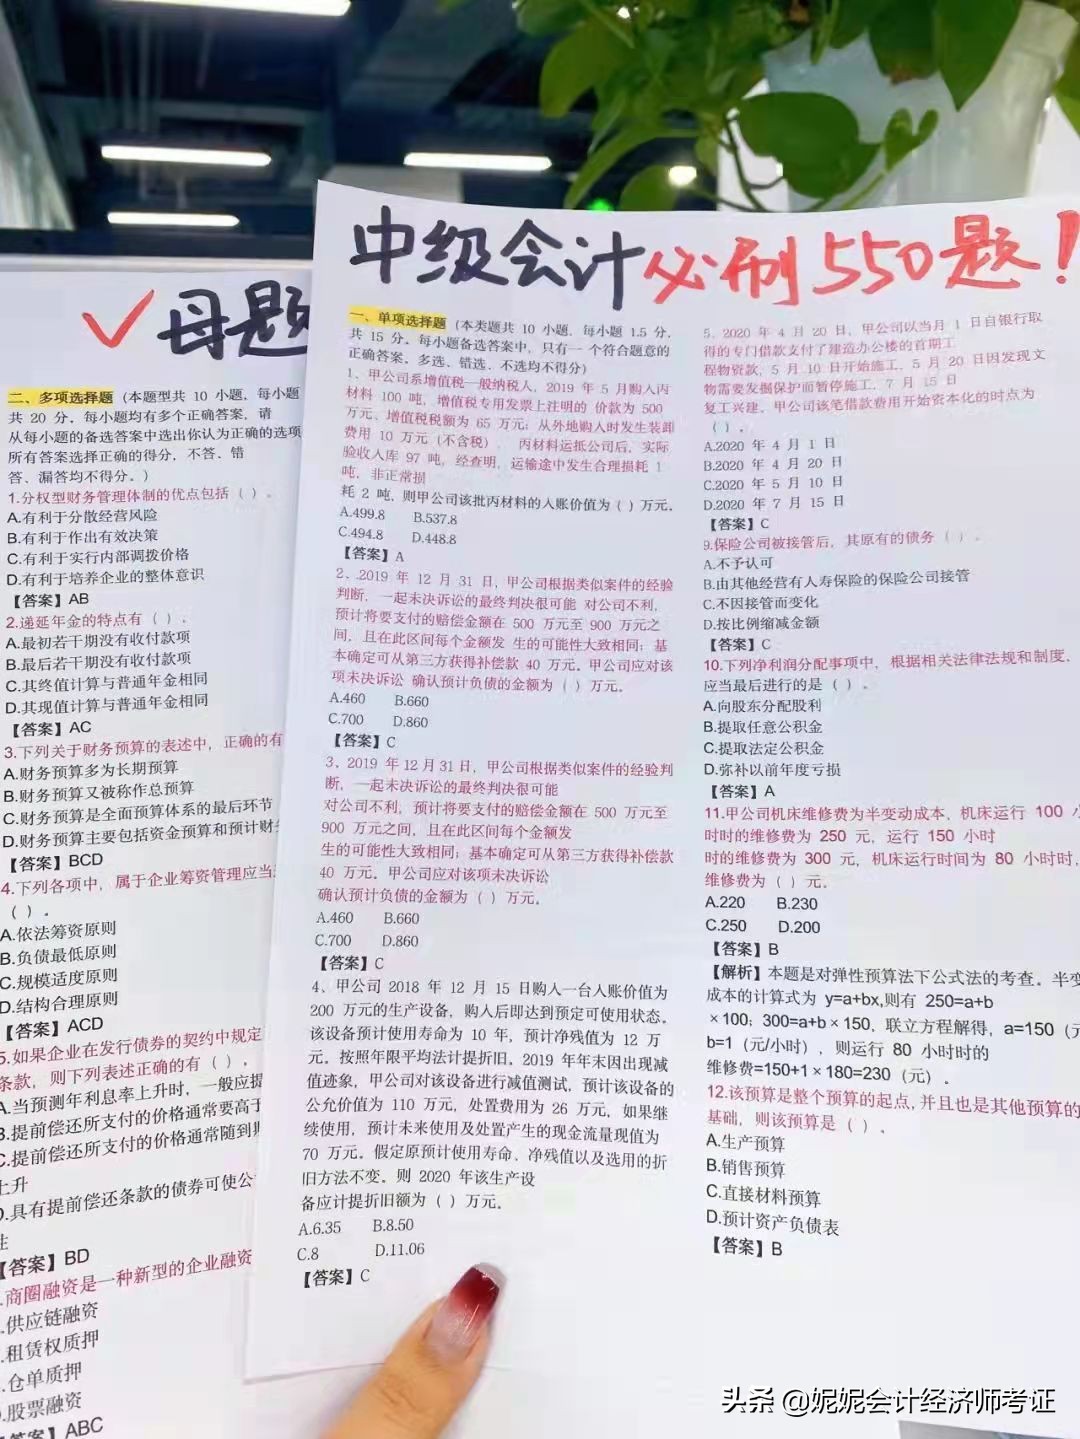 ✓母题
二、多项选择题（本题型共 10 小题，每小题
共 20 分。每小题均有多个正确答案，请
从每小题的备选答案中选出你认为正确的选项
所有答案选择正确的得分，不答、错
答、漏答均不得分。）
1.分权型财务管理体制的优点包括（ ）。
A.有利于分散经营风险
B.有利于作出有效决策
C.有利于实行内部调拨价格
D.有利于培养企业的整体意识
【答案】AB
2.递延年金的特点有（ ）。
A.最初若干期没有收付款项
B.最后若干期没有收付款项
C.其终值计算与普通年金相同
D.其现值计算与普通年金相同
【答案】AC
3.下列关于财务预算的表述中，正确的有
A.财务预算多为长期预算
B.财务预算又被称作总预算
C.财务预算是全面预算体系的最后环节
D.财务预算主要包括资金预算和预计财
【答案】BCD
4.下列各项中，属于企业筹资管理应当
（ ）。
A.依法筹资原则
B.负债最低原则
C.规模适度原则
D.结构合理原则
【答案】ACD
5.如果企业在发行债券的契约中规定
条款，则下列表述正确的有（ ）。
A.当预测年利息率上升时，一般应提
B.提前偿还所支付的价格通常要高于
C.提前偿还所支付的价格通常随到
上升
D.具有提前偿还条款的债券可使公
性
【答案】BD
.商圈融资是一种新型的企业融资
.供应链融资
.租赁权质押
.仓单质押
.股票融资
【答案】ABC
中级会计必刷550题！
一、单项选择题（本类题共 10 小题，每小题 1.5 分，
共 15 分。每小题备选答案中，只有一 个符合题意的
正确答案。多选、错选、不选均不得分）
1、甲公司系增值税一般纳税人，2019 年 5 月购入丙
材料 100 吨，增值税专用发票上注明的 价款为 500
万元、增值税税额为 65 万元；从外地购入时发生装卸
费用 10 万元（不含税）。 丙材料运抵公司后，实际
验收入库 97 吨，经查明，运输途中发生合理损耗 1
吨，非正常损
耗 2 吨，则甲公司该批丙材料的入账价值为（ ）万元。
A.499.8 B.537.8
C.494.8 D.448.8
【答案】A
2、.2019 年 12 月 31 日，甲公司根据类似案件的经验
判断，一起未决诉讼的最终判决很可能 对公司不利，
预计将要支付的赔偿金额在 500 万元至 900 万元之
间，且在此区间每个金额发 生的可能性大致相同；基
本确定可从第三方获得补偿款 40 万元。甲公司应对该
项未决诉讼 确认预计负债的金额为（ ）万元。
A.460 B.660
C.700 D.860
【答案】C
3、2019 年 12月31 日，甲公司根据类似案件的经验判
断，一起未决诉讼的最终判决很可能
对公司不利，预计将要支付的赔偿金额在 500 万元至
900 万元之间，且在此区间每个金额发
生的可能性大致相同；基本确定可从第三方获得补偿款
40 万元。甲公司应对该项未决诉讼
确认预计负债的金额为（ ）万元。
A.460 B.660
C.700 D.860
【答案】C
4、甲公司 2018 年 12 月 15 日购入一台入账价值为
200 万元的生产设备，购入后即达到预定可使用状态。
该设备预计使用寿命为 10 年，预计净残值为 12 万
元。按照年限平均法计提折旧。2019 年年末因出现减
值迹象，甲公司对该设备进行减值测试，预计该设备的
公允价值为 110 万元，处置费用为 26 万元，如果继
续使用，预计未来使用及处置产生的现金流量现值为
70 万元。假定原预计使用寿命、净残值以及选用的折
旧方法不变。则 2020 年该生产设
备应计提折旧额为（ ）万元。
A.6.35 B.8.50
C.8 D.11.06
【答案】C
5、2020 年 4 月 20 日，甲公司以当月 1 日自银行取
得的专门借款支付了建造办公楼的首期工
程物资款，5 月 10 日开始施工，5 月 20 日因发现文
物需要发掘保护而暂停施工，7 月 15 日
复工兴建。甲公司该笔借款费用开始资本化的时点为
（ ）。
A.2020 年 4 月 1 日
B.2020 年 4 月 20 日
C.2020 年 5 月 10 日
D.2020 年 7 月 15 日
【答案】C
9.保险公司被接管后，其原有的债务（ ）。
A.不予认可
B.由其他经营有人寿保险的保险公司接管
C.不因接管而变化
D.按比例缩减金额
【答案】C
10.下列净利润分配事项中，根据相关法律法规和制度，
应当最后进行的是（ ）。
A.向股东分配股利
B.提取任意公积金
C.提取法定公积金
D.弥补以前年度亏损
【答案】A
11.甲公司机床维修费为半变动成本，机床运行 100 小
时时的维修费为 250 元，运行 150 小时
时的维修费为 300 元，机床运行时间为 80 小时时，
维修费为（ ）元。
A.220 B.230
C.250 D.200
【答案】B
【解析】本题是对弹性预算法下公式法的考查。半变
成本的计算式为 y=a+bx,则有 250=a+b
×100；300=a+b×150，联立方程解得，a=150（元
b=1（元/小时），则运行 80 小时时的
维修费=150+1×180=230（元）。
12.该预算是整个预算的起点，并且也是其他预算的
基础，则该预算是（ ）。
A.生产预算
B.销售预算
C.直接材料预算
D.预计资产负债表
【答案】B
头条 @妮妮会计经济师考证